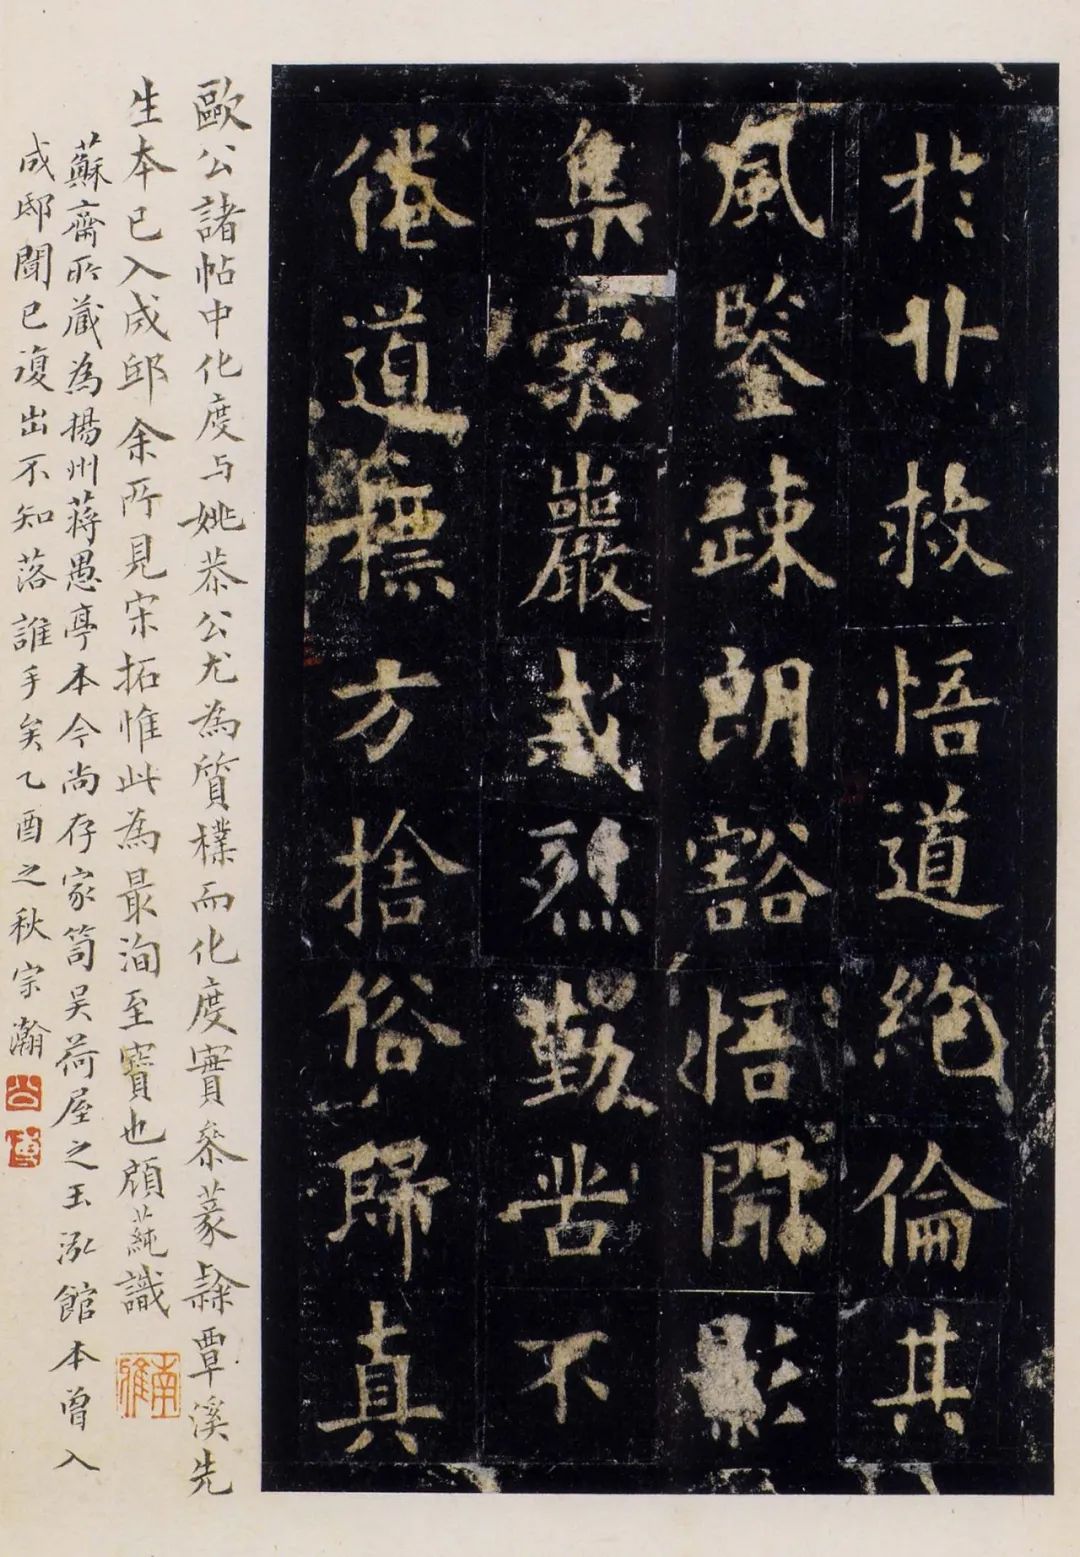 於廿救悟道絕倫其
風鑒疎朗豁悟閑
集家嚴咸烈勤苦不
倦道標方捨俗歸真
歐公諸帖中化度与姚恭公尤為質樸而化度實參篆隸覃溪先
生本已入成邸余所見宋拓惟此為最洵至寶也顧蒓識
南雅
蘇齋所藏為揚州蔣愚亭本今尚存家笥吴荷屋之玉泓館本曾入
成邸聞已復出不知落誰手矣乙酉之秋宗瀚
公
博